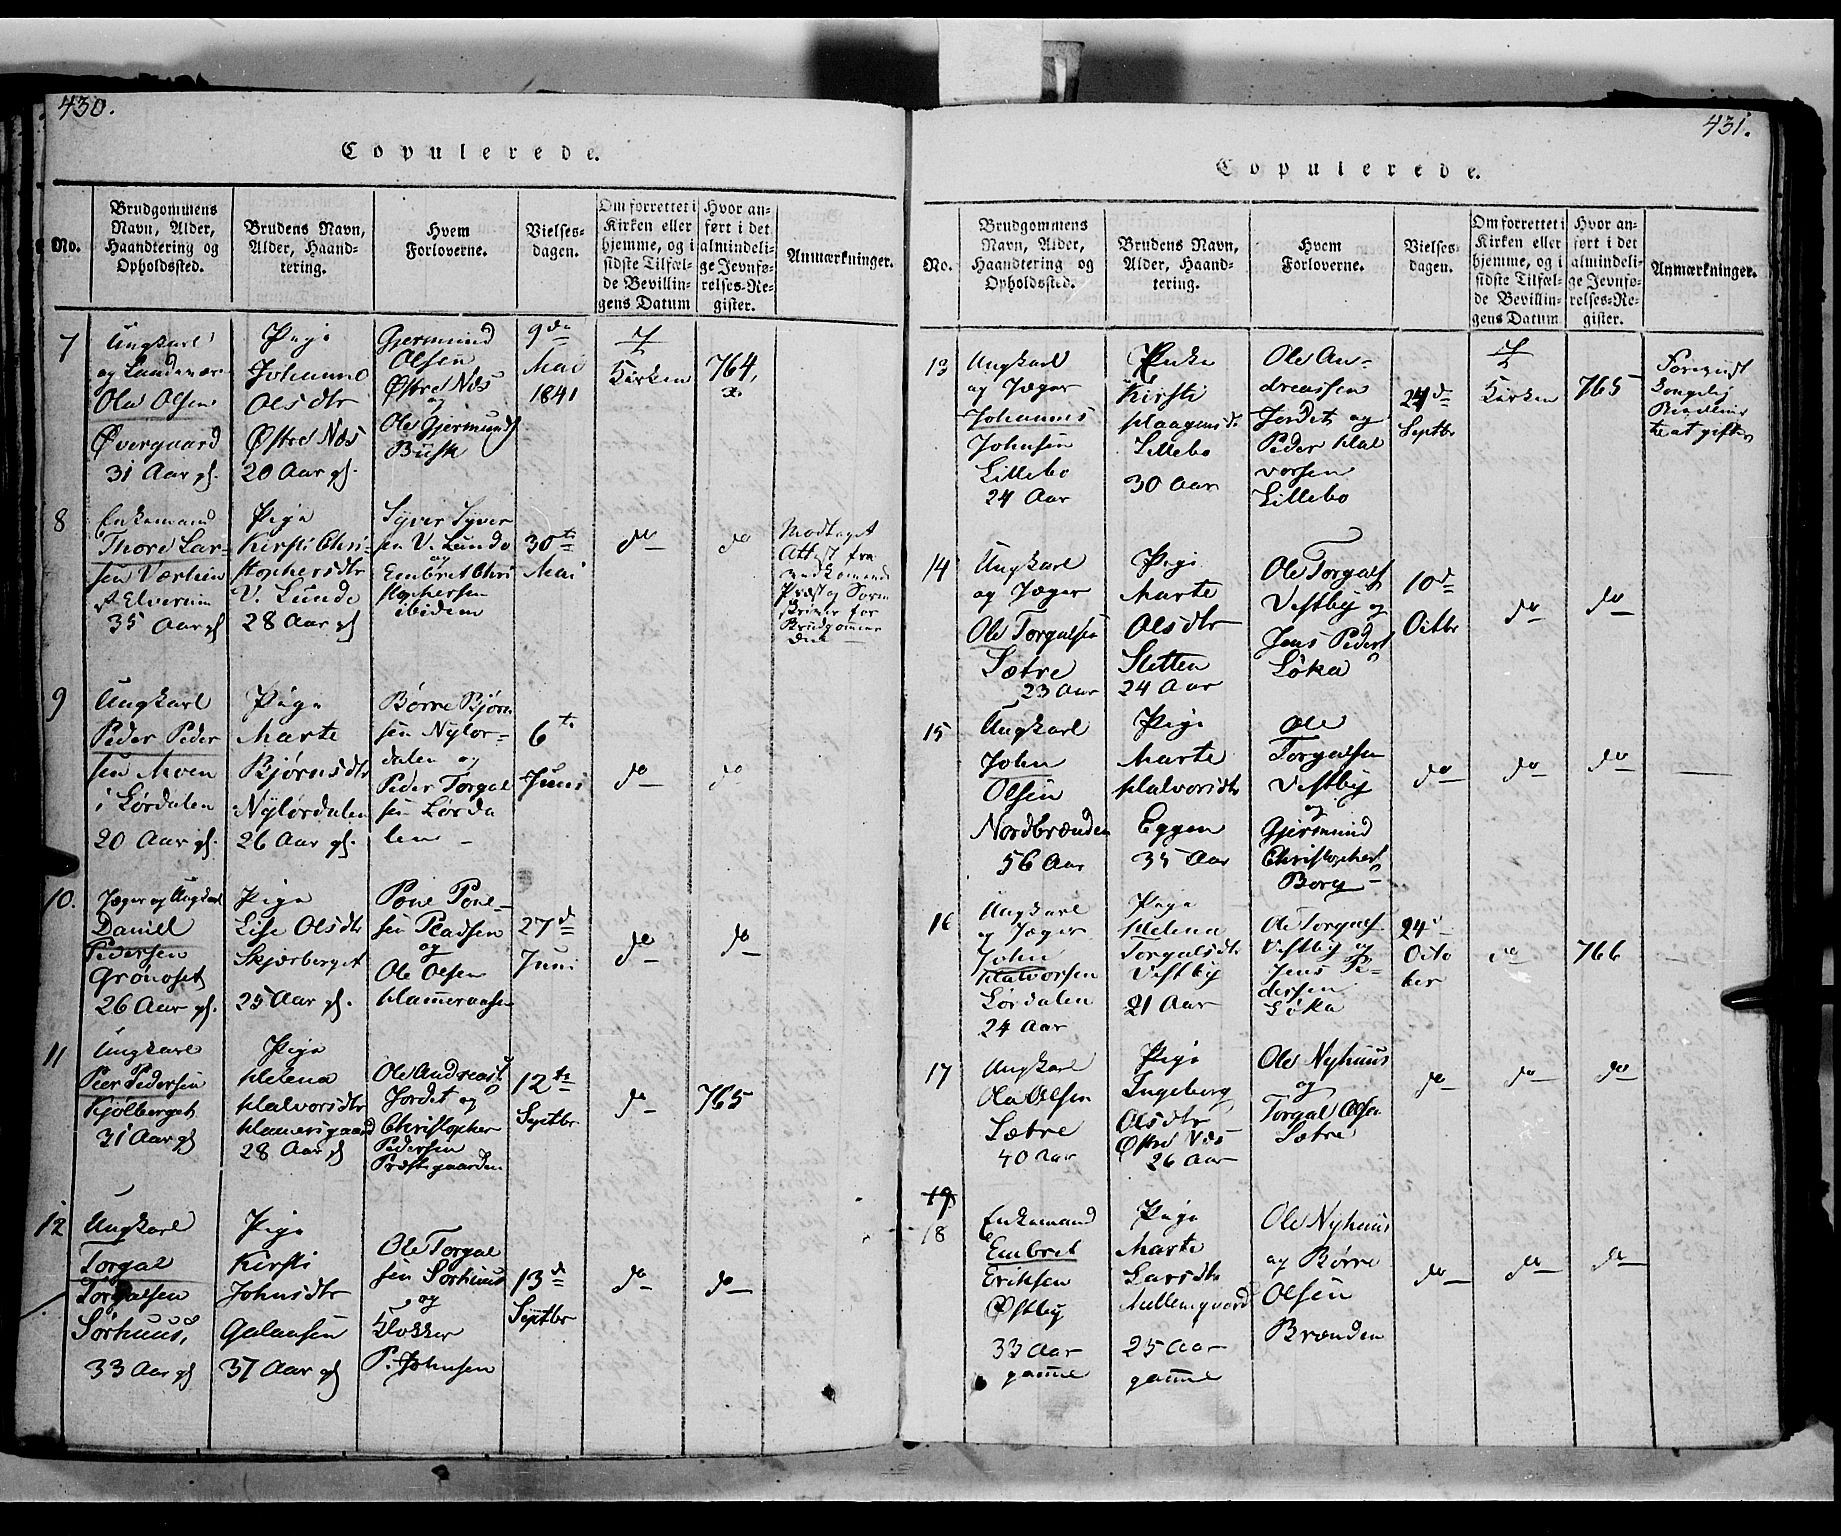 430.
Copulerede.
No.
Brudgommens Navn, Alder, Haandtering og Opholdssted.
Brudens Navn, Alder, Haandtering.
Hvem Forloverne.
Vielsesdagen.
Om forrettet i Kirken eller hjemme, og i sidste Tilfælde Bevillingens Datum
Hvor anført i det almindelige Jevnførelses-Register.
Anmærkninger.
7
Ungkarl
Ole Olsen
Øvergaard
31 Aar gl.
Pige
Johanne
Olsdtr
Østre Næs
20 Aar gl.
Gjermund
Olsen
Østre Næs
og
Ole Gjermunds
Busk
9de
Mai
1841
I
Kirken
764,
8
Enkemand
Thore Lar-
sen Værhien
35 Aar gl
Pige
Kirsti Chri-
stophersdtr
V. Lunde
28 Aar gl
Syver Syver
sen V. Lunde
og
Embret Chri
stophersen
ibidem
30te
Mai
do
do
Modtaget
Attest fra
Brudgommen
9
Ungkarl
Peder Peder
sen Moen
i Lørdalen
20 Aar gl.
Pige
Marte
Bjørnsdtr
Nylørdalen
26 Aar gl.
Børre Bjørn
sen Nylør-
dalen og
Peder Torgal
sen Lørda
len
6te
Juni
do
do
10.
Jæger og Ungkarl
Daniel
Pedersen
Grønoset
26 Aar gl.
Pige
Lise Olsdtr
Skjærberget
25 Aar gl.
Povel Povel-
sen Pladsen
og
Ole Olsen
Hammeraasen
27de
Juni
do
do
11
Ungkarl
Peer Pedersen
Kjølberget
31 Aar gl
Pige
Helena
Halvorsdtr
Hammersgaard
28 Aar gl
Ole Andreass
Jordet og
Christopher
Pedersen
Præstegaarden
12te
Septbr
do
765
12
Ungkarl
Torgal
Torgalsen
Sørhuus,
33 Aar gl
Pige
Kirsti
Johnsdtr
Galaasen
37 Aar gl
Ole Torgal
sen Sørhuus
og
Klokker
P. Johnsen
13de
Septbr
do
do
431.
Copulerede.
No.
Brudgommens Navn, Alder, Haandtering og Opholdssted.
Brudens Navn, Alder, Haandtering.
Hvem Forloverne.
Vielsesdagen.
Om forrettet i Kirken eller hjemme, og i sidste Tilfælde Bevillingens Datum
Hvor anført i det almindelige Jevnførelses-Register.
Anmærkninger.
13
Ungkarl
og Jæger
Johannes
Johnsen
Lillebo
24 Aar
Kirsti
Haagensdtr
Lillebo
30 Aar
Ole An-
dreassen
Jordet og
Peder Hal
vorsen
Lillebo
Septbr
I
Kirken
765
14
Ungkarl
og Jæger
Ole Torgalsen
Sætre
23 Aar
Pige
Marte
Olsdtr
Sletten
24 Aar
Ole Torgals
Vestby og
Jens Peders
Løka
10de
Octbr
do
do
15
Ungkarl
John
Olsen
Nordbrænden
56 Aar
Pige
Marte
Halvorsdtr
Eggen
35 Aar
Ole
Torgalsen
Vestby
og
Gjermund
Christophers
Borg
do
do
do
16
Ungkarl
og Jæger
John
Halvorsen
Lørdalen
24 Aar
Pige
Helena
Torgalsdtr
Vestby
21 Aar
Ole Torgals
Vestby og
Jens Pe-
dersen
Løka
24de
Octo
ber
do
766
17
Ungkarl
Ola Olsen
Sætre
40 Aar
Pige
Ingeborg
Olsdtr
Østre Næs
26 Aar
Ole Nyhuus
og
Torgal Olsen
Sætre
do
do
do
18
Enkemand
Embret
Eriksen
Østby
33 Aar
gamme
Pige
Marte
Larsdtr
Mellemgaard
25 Aar
gamme
Ole Nyhuus
og Børre
Olsen
Brænden
do
do
do